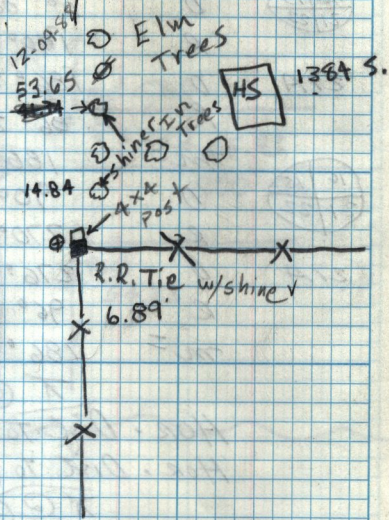 12-09-88
Elm
Trees
53.65
HS
1384 S.
shiner In
Trees
14.84
4x4
post
R.R. Tie w/shiner
6.89'